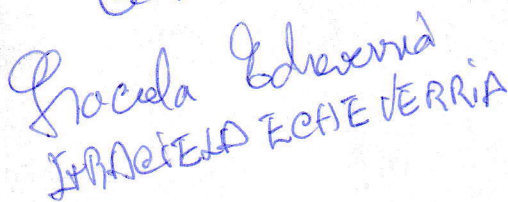 Graciela Echeverria
GRACIELA ECHEVERRIA